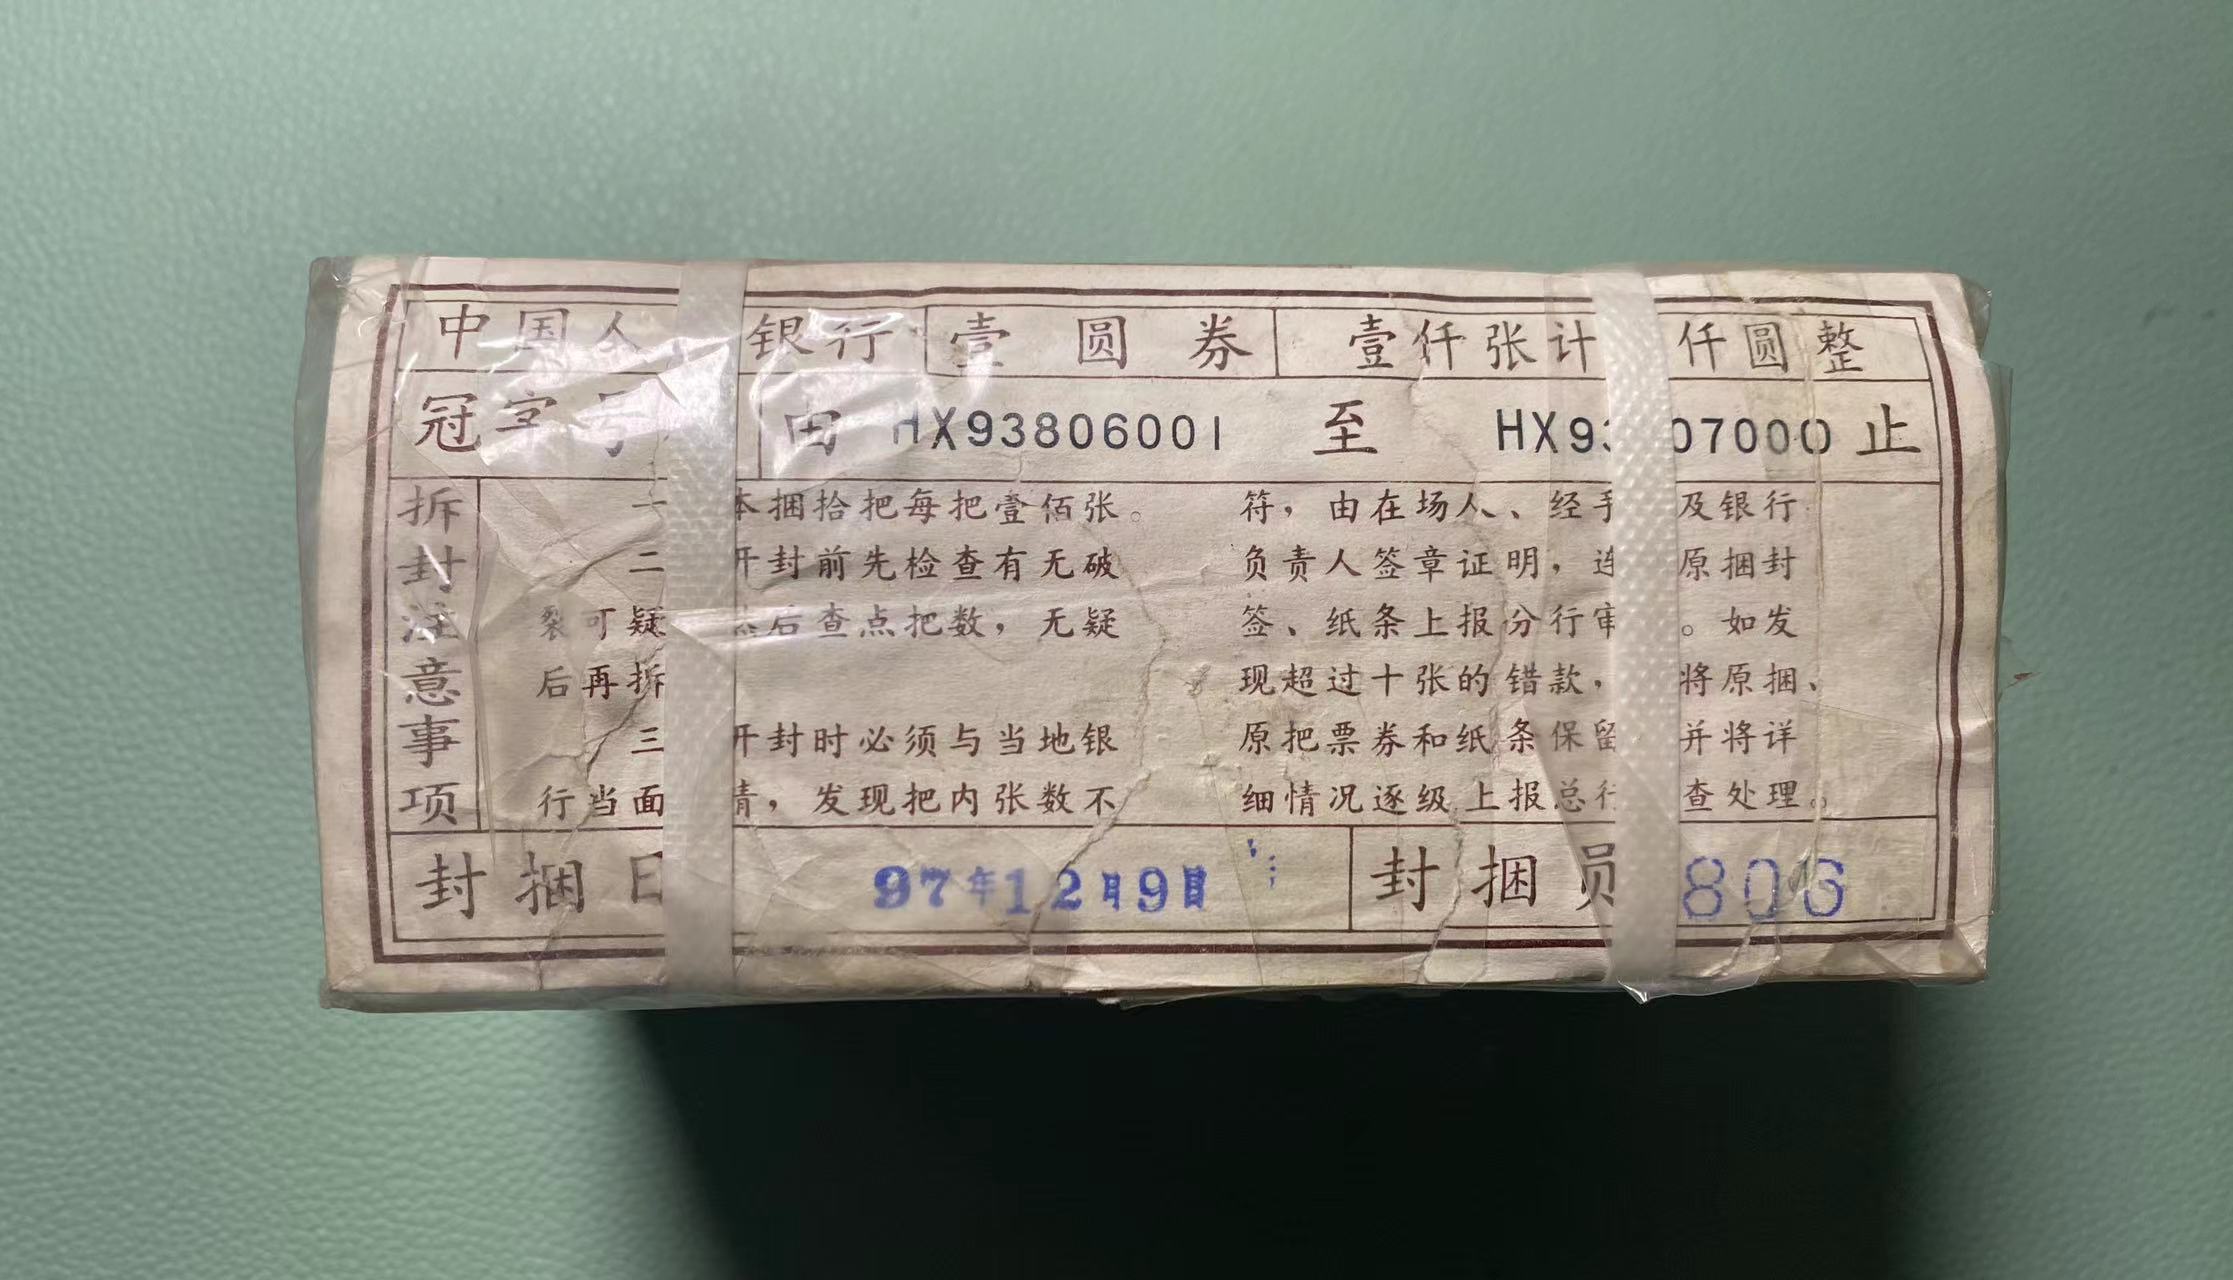 中国人 银行 壹圆券 壹仟张计 仟圆整
冠字号 由 HX93806001 至 HX93 07000 止
拆封注意事项
一 本捆拾把每把壹佰张。
二 开封前先检查有无破
裂可疑 然后查点把数，无疑
后再拆
三 开封时必须与当地银
行当面 清，发现把内张数不
符，由在场人、经手 及银行
负责人签章证明，连 原捆封
签、纸条上报分行审 。如发
现超过十张的错款， 将原捆、
原把票券和纸条保留 并将详
细情况逐级上报总行 查处理。
封捆日 97年12月9日 封捆员 806